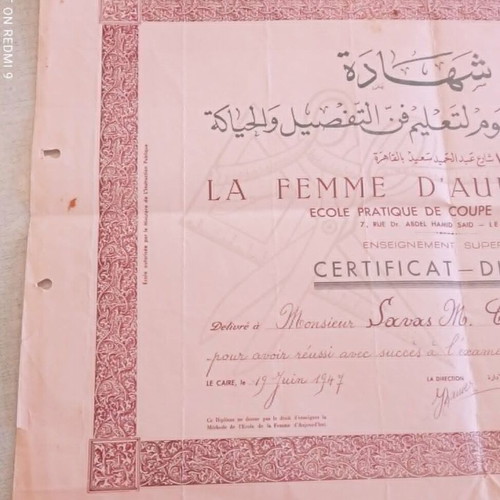 ON REDMI 9
شهادة
لتعليم فن التفصيل والحياكة
شارع عبد الحميد سعيد بالقاهرة
LA FEMME D'AU
ECOLE PRATIQUE DE COUPE
7, RUE Dr. ABDEL HAMID SAID — LE
ENSEIGNEMENT SUPE
CERTIFICAT—D
Délivré à Monsieur Savas M.
pour avoir réussi avec succès à l'exame
LE CAIRE, le 19 Juin 1947
LA DIRECTION
Ce Diplôme ne donne pas le droit d'enseigner la
Méthode de l'Ecole de la Femme d'Aujourd'hui.
Ecole autorisée par le Ministère de l'Instruction Publique